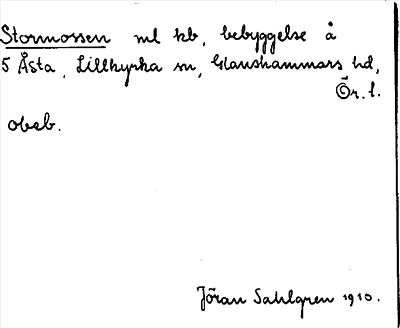 Stormossen ml kb, bebyggelse å
5 Åsta, Lillkyrka sn, Glanshammars hd,
Ör. l.
obeb.
Jöran Sahlgren 1910.